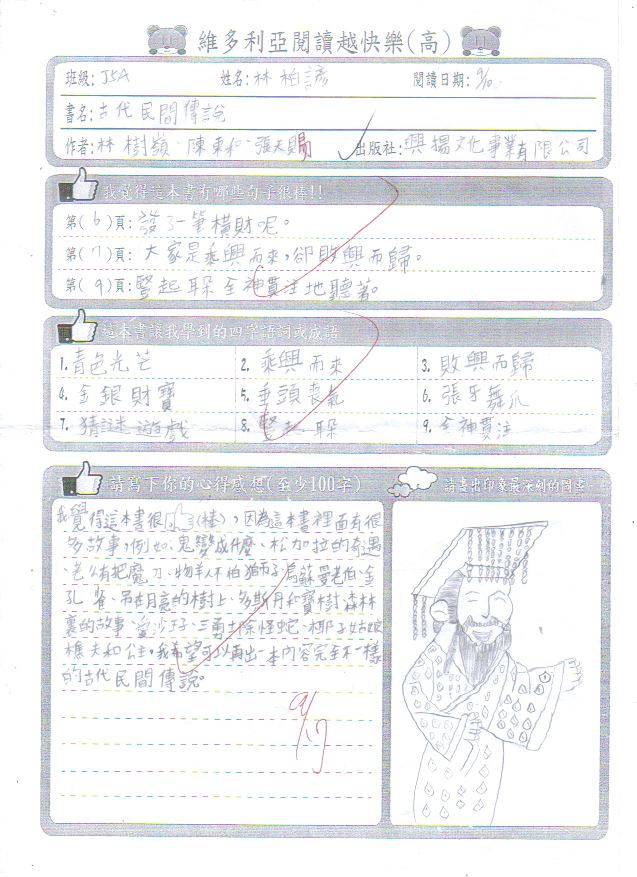 維多利亞閱讀越快樂(高)
班級: J5A 姓名: 林柏諺 閱讀日期: 9/10
書名: 古代民間傳說
作者: 林樹嶺、陳東和、張天賜 出版社: 興揚文化事業有限公司
我覺得這本書有哪些句子很棒!!
第(6)頁: 發了一筆橫財呢。
第(7)頁: 大家是乘興而來,卻敗興而歸。
第(9)頁: 豎起耳朵全神貫注地聽著。
這本書讓我學到的四字語詞或成語
1. 青色光芒 2. 乘興而來 3. 敗興而歸
4. 金銀財寶 5. 垂頭喪氣 6. 張牙舞爪
7. 猜謎遊戲 8. 豎起耳朵 9. 全神貫注
請寫下你的心得感想(至少100字) 請畫出印象最深刻的圖畫
我覺得這本書很(棒),因為這本書裡面有很
多故事,例如:鬼變成什麼、松加拉的奇遇
、老公有把魔刀、物羊不怕獅子、烏蘇曼老伯、金
孔雀、吊在月亮的樹上、多斯丹和寶樹、森林
裏的故事、愛沙子、三勇士除怪蛇、椰子姑娘
樵夫和公主。我希望可以再出一本內容完全不一樣
的古代民間傳說。
9/17